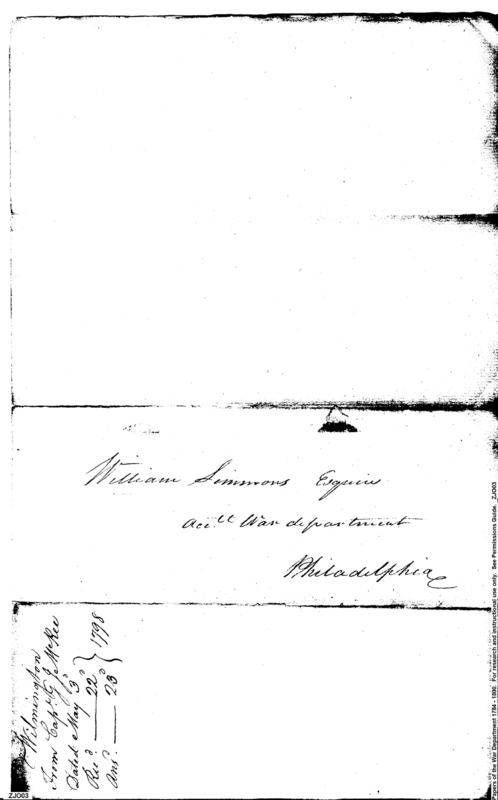 William Simmons Esquire
Acc.tt War department
Philadelphia
Wilmington
From Cap.t G. J. McKee
Dated May 3d
Rec.d — 22d } 1798
Ans.d — 23
ZJO03
Papers of the War Department 1784 - 1800. For research and instructional use only. See Permissions Guide. ZJO03